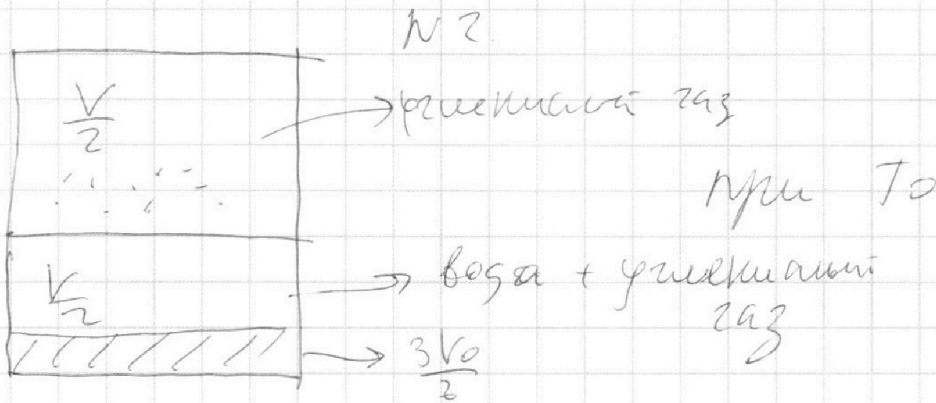 N 2
V/2
углекислый газ
при T0
V/2
вода + углекислый
газ
3V0/